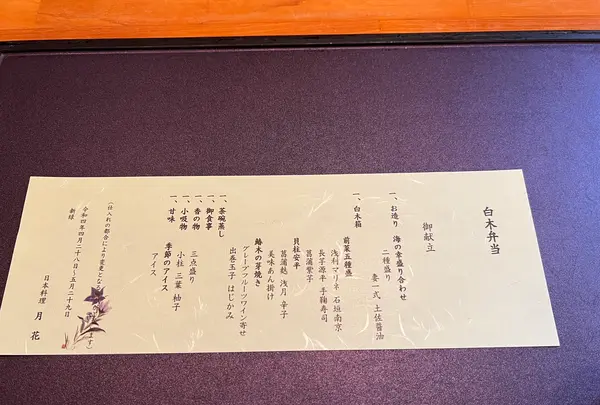 白木弁当
御献立
一、お造り 海の幸盛り合わせ
二種盛り 妻一式 土佐醤油
一、白木箱
前菜五種盛
浅利マリネ 石垣南京
長芋源平 手鞠寿司
菖蒲紫子
貝柱安平
菖蒲麩 浅月 辛子
美味あん掛け
鰆木の芽焼き
グレープフルーツワイン寄せ
出巻玉子 はじかみ
一、茶碗蒸し
一、御食事
一、香の物 三点盛り
一、小吸物 小柱 三葉 柚子
一、甘味 季節のアイス
アイス
(仕入れの都合により変更となる
ます)
令和四年四月二十八日～五月二十九日
新緑
日本料理 月花